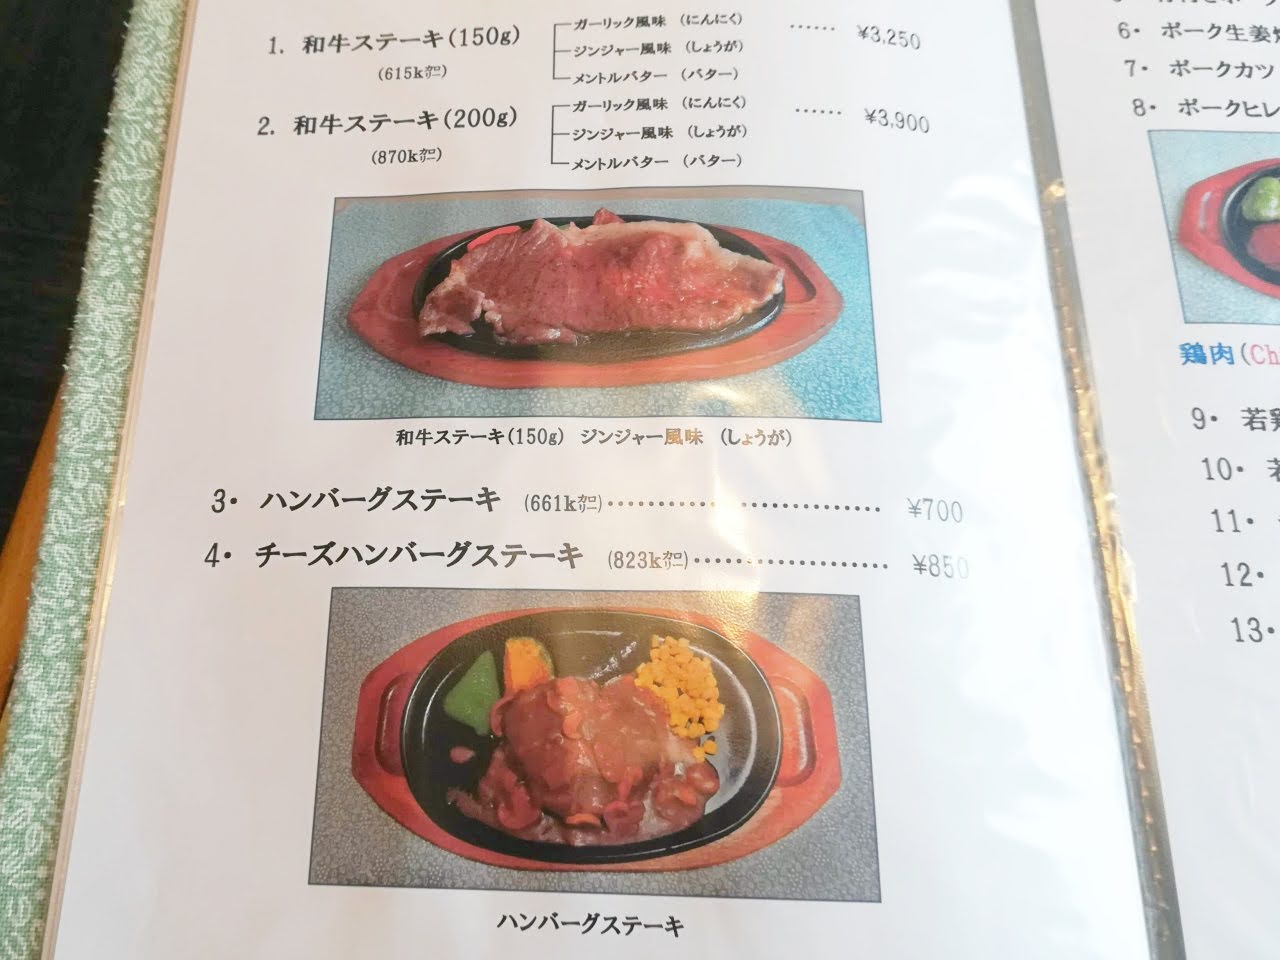 1. 和牛ステーキ(150g)
(615kカロリー)
ガーリック風味 (にんにく)
ジンジャー風味 (しょうが)
メントルバター (バター)
…… ¥3,250
2. 和牛ステーキ(200g)
(870kカロリー)
ガーリック風味 (にんにく)
ジンジャー風味 (しょうが)
メントルバター (バター)
…… ¥3,900
和牛ステーキ(150g) ジンジャー風味 (しょうが)
3・ ハンバーグステーキ (661kカロリー)…………………… ¥700
4・ チーズハンバーグステーキ (823kカロリー)……………… ¥850
ハンバーグステーキ
6・ ポーク生姜
7・ ポークカツ
8・ ポークヒレ
鶏肉(Ch
9・ 若鶏
10・ 若
11・
12・
13・